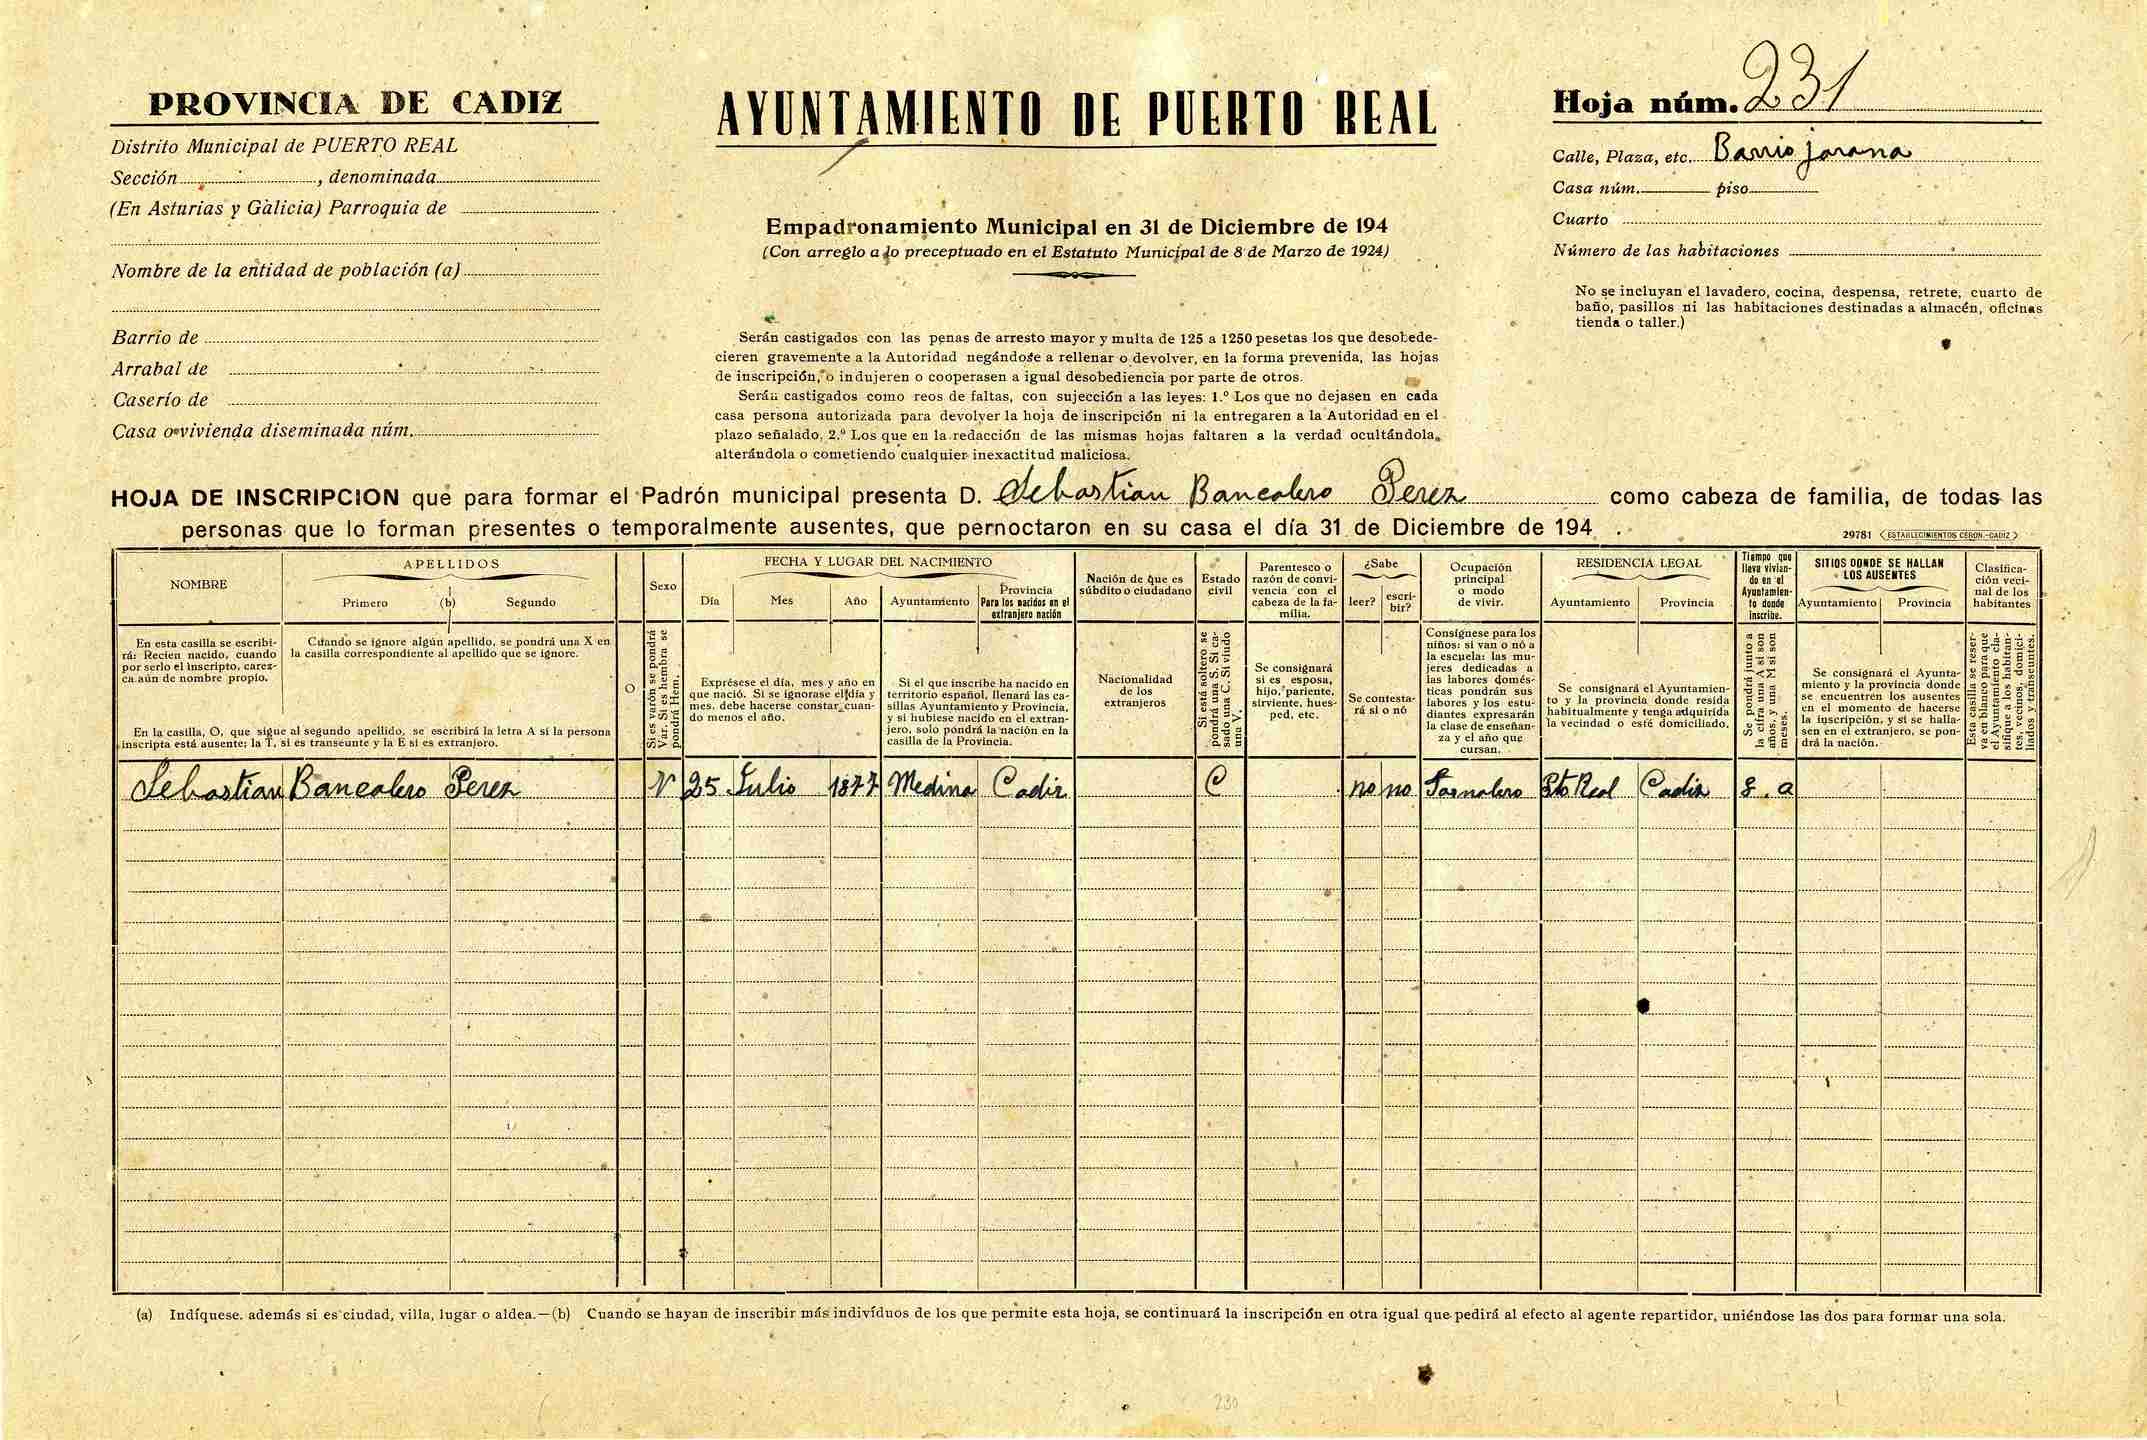 PROVINCIA DE CADIZ
Distrito Municipal de PUERTO REAL
Sección , denominada
(En Asturias y Galicia) Parroquia de
Nombre de la entidad de población (a)
Barrio de
Arrabal de
Caserío de
Casa o vivienda diseminada núm.
AYUNTAMIENTO DE PUERTO REAL
Empadronamiento Municipal en 31 de Diciembre de 194
(Con arreglo a lo preceptuado en el Estatuto Municipal de 8 de Marzo de 1924)
Serán castigados con las penas de arresto mayor y multa de 125 a 1250 pesetas los que desobede-
cieren gravemente a la Autoridad negándose a rellenar o devolver, en la forma prevenida, las hojas
de inscripción, o indujeren o cooperasen a igual desobediencia por parte de otros.
Serán castigados como reos de faltas, con sujección a las leyes: 1.º Los que no dejasen en cada
casa persona autorizada para devolver la hoja de inscripción ni la entregaren a la Autoridad en el
plazo señalado, 2.º Los que en la redacción de las mismas hojas faltaren a la verdad ocultándola,
alterándola o cometiendo cualquier inexactitud maliciosa.
Hoja núm. 231
Calle, Plaza, etc. Barrio jarana
Casa núm. piso
Cuarto
Número de las habitaciones
No se incluyan el lavadero, cocina, despensa, retrete, cuarto de
baño, pasillos ni las habitaciones destinadas a almacén, oficinas
tienda o taller.)
HOJA DE INSCRIPCION que para formar el Padrón municipal presenta D. Sebastian Bancalero Perez como cabeza de familia, de todas las
personas que lo forman presentes o temporalmente ausentes, que pernoctaron en su casa el día 31 de Diciembre de 194 .
29781 (ESTABLECIMIENTOS CERON.-CADIZ)
NOMBRE
En esta casilla se escribi-
rá: Recien nacido, cuando
por serlo el inscripto, carez-
ca aún de nombre propio.
APELLIDOS
Primero (b) Segundo
Cuando se ignore algún apellido, se pondrá una X en
la casilla correspondiente al apellido que se ignore.
En la casilla, O, que sigue al segundo apellido, se escribirá la letra A si la persona
inscripta está ausente; la T, si es transeunte y la E si es extranjero.
O
Sexo
Si es varón se pondrá
Var. Si es hembra se
pondrá Hem.
FECHA Y LUGAR DEL NACIMIENTO
Día Mes Año
Exprésese el día, mes y año en
que nació. Si se ignorase el día y
mes, debe hacerse constar cuan-
do menos el año.
Ayuntamiento
Provincia
Para los nacidos en el
extranjero nación
Si el que inscribe ha nacido en
territorio español, llenará las ca-
sillas Ayuntamiento y Provincia,
y si hubiese nacido en el extran-
jero, solo pondrá la nación en la
casilla de la Provincia.
Nación de que es
súbdito o ciudadano
Nacionalidad
de los
extranjeros
Estado
civil
Si está soltero se
pondrá una S. Si ca-
sado una C. Si viudo
una V.
Parentesco o
razón de convi-
vencia con el
cabeza de la fa-
milia.
Se consignará
si es esposa,
hijo, pariente,
sirviente, hues-
ped, etc.
¿Sabe
leer? escri-
bir?
Se contesta-
rá si o nó
Ocupación
principal
o modo
de vivir.
Consígnese para los
niños: si van o nó a
la escuela: las mu-
jeres dedicadas a
las labores domés-
ticas pondrán sus
labores y los estu-
diantes expresarán
la clase de enseñan-
za y el año que
cursan.
RESIDENCIA LEGAL
Ayuntamiento Provincia
Se consignará el Ayuntamien-
to y la provincia donde resida
habitualmente y tenga adquirida
la vecindad o esté domiciliado.
Tiempo que
lleva vivien-
do en el
Ayuntamien-
to donde
inscribe.
Se pondrá junto a
la cifra una A si son
años, y una M si son
meses.
SITIOS DONDE SE HALLAN
LOS AUSENTES
Ayuntamiento Provincia
Se consignará el Ayunta-
miento y la provincia donde
se encuentren los ausentes
en el momento de hacerse
la inscripción, y si se halla-
sen en el extranjero, se pon-
drá la nación.
Clasifica-
ción veci-
nal de los
habitantes
Esta casilla se reser-
va en blanco para que
el Ayuntamiento cla-
sifique a los habitan-
tes, vecinos, domici-
liados y transeuntes.
Sebastian Bancalero Perez V 25 Julio 1877 Medina Cadiz C no no Jornalero Pto Real Cadiz 8 . a
(a) Indíquese. además si es ciudad, villa, lugar o aldea.—(b) Cuando se hayan de inscribir más indivíduos de los que permite esta hoja, se continuará la inscripción en otra igual que pedirá al efecto al agente repartidor, uniéndose las dos para formar una sola.
230